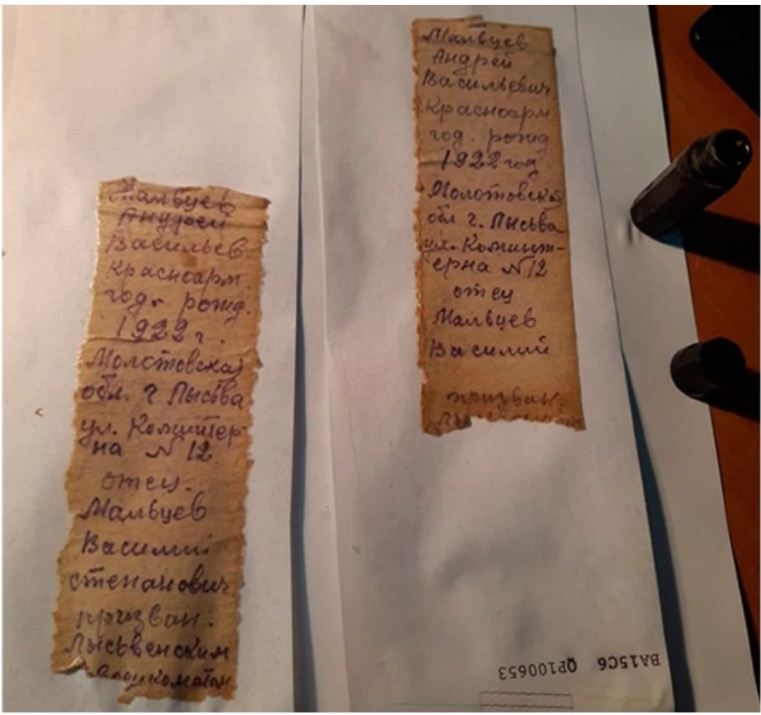 Мальцев
Андрей
Васильев
Красноарм
год. рожд.
1922 г.
Молотовская
обл. г Лысьва
ул. Коминтер
на N 12
отец.
Мальцев
Василий
степанович
призван.
Лысьвенским
Военкоматом
Мальцев
Андрей
Васильевич
Красноарм
год. рожд
1922 год
Молотовская
обл. г. Лысьва
ул. Коминт-
ерна N 12
отец
Мальцев
Василий
призван.
BA15C6 QP100653